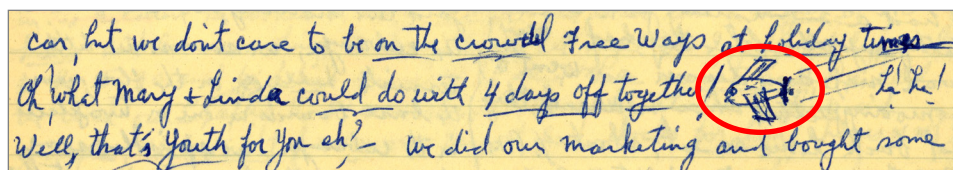 car, but we don't care to be on the crowded Free Ways at holiday times
Oh, what Mary & Linda could do with 4 days off together! ha! ha!
Well, that's Youth for You eh? - we did our marketing and bought some